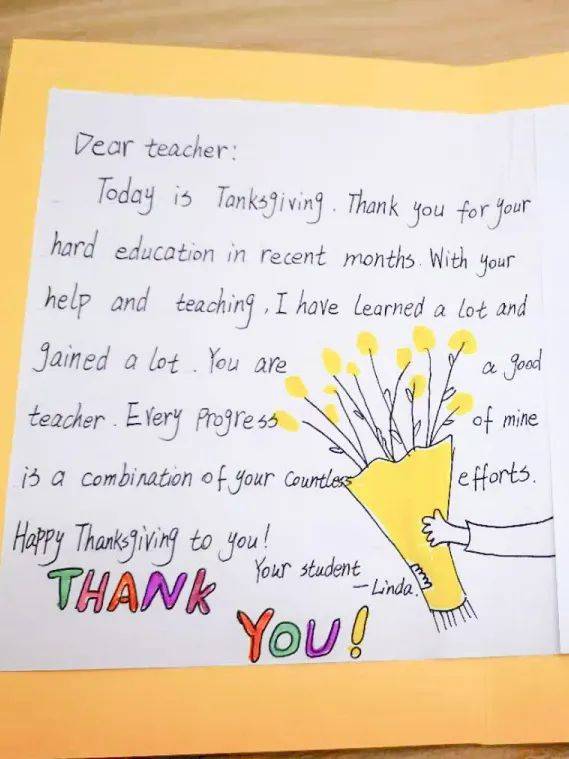 Dear teacher:
Today is Tanksgiving. Thank you for your
hard education in recent months. With your
help and teaching, I have learned a lot and
gained a lot. You are a good
teacher. Every Progress of mine
is a combination of your countless efforts.
Happy Thanksgiving to you!
Your student
—Linda.
THANK
YOU!